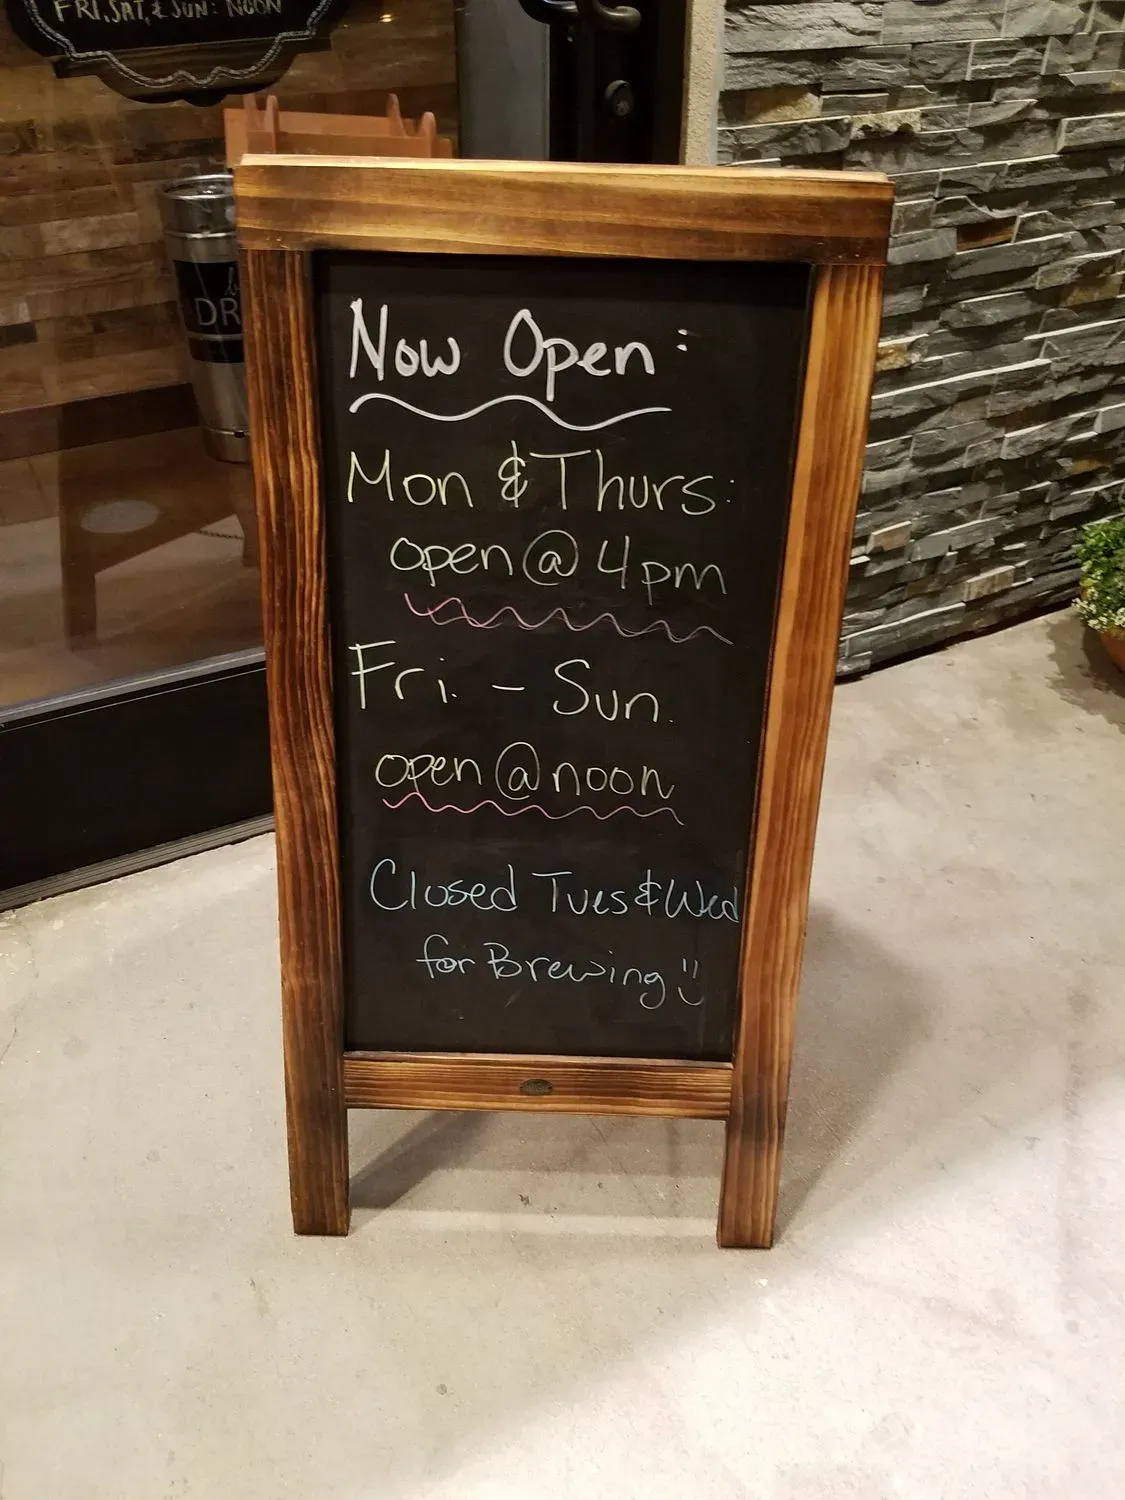 FRI, SAT, & SUN: NOON
DR
Now Open:
Mon & Thurs:
open @ 4pm
Fri. - Sun.
open @ noon
Closed Tues & Wed
for Brewing